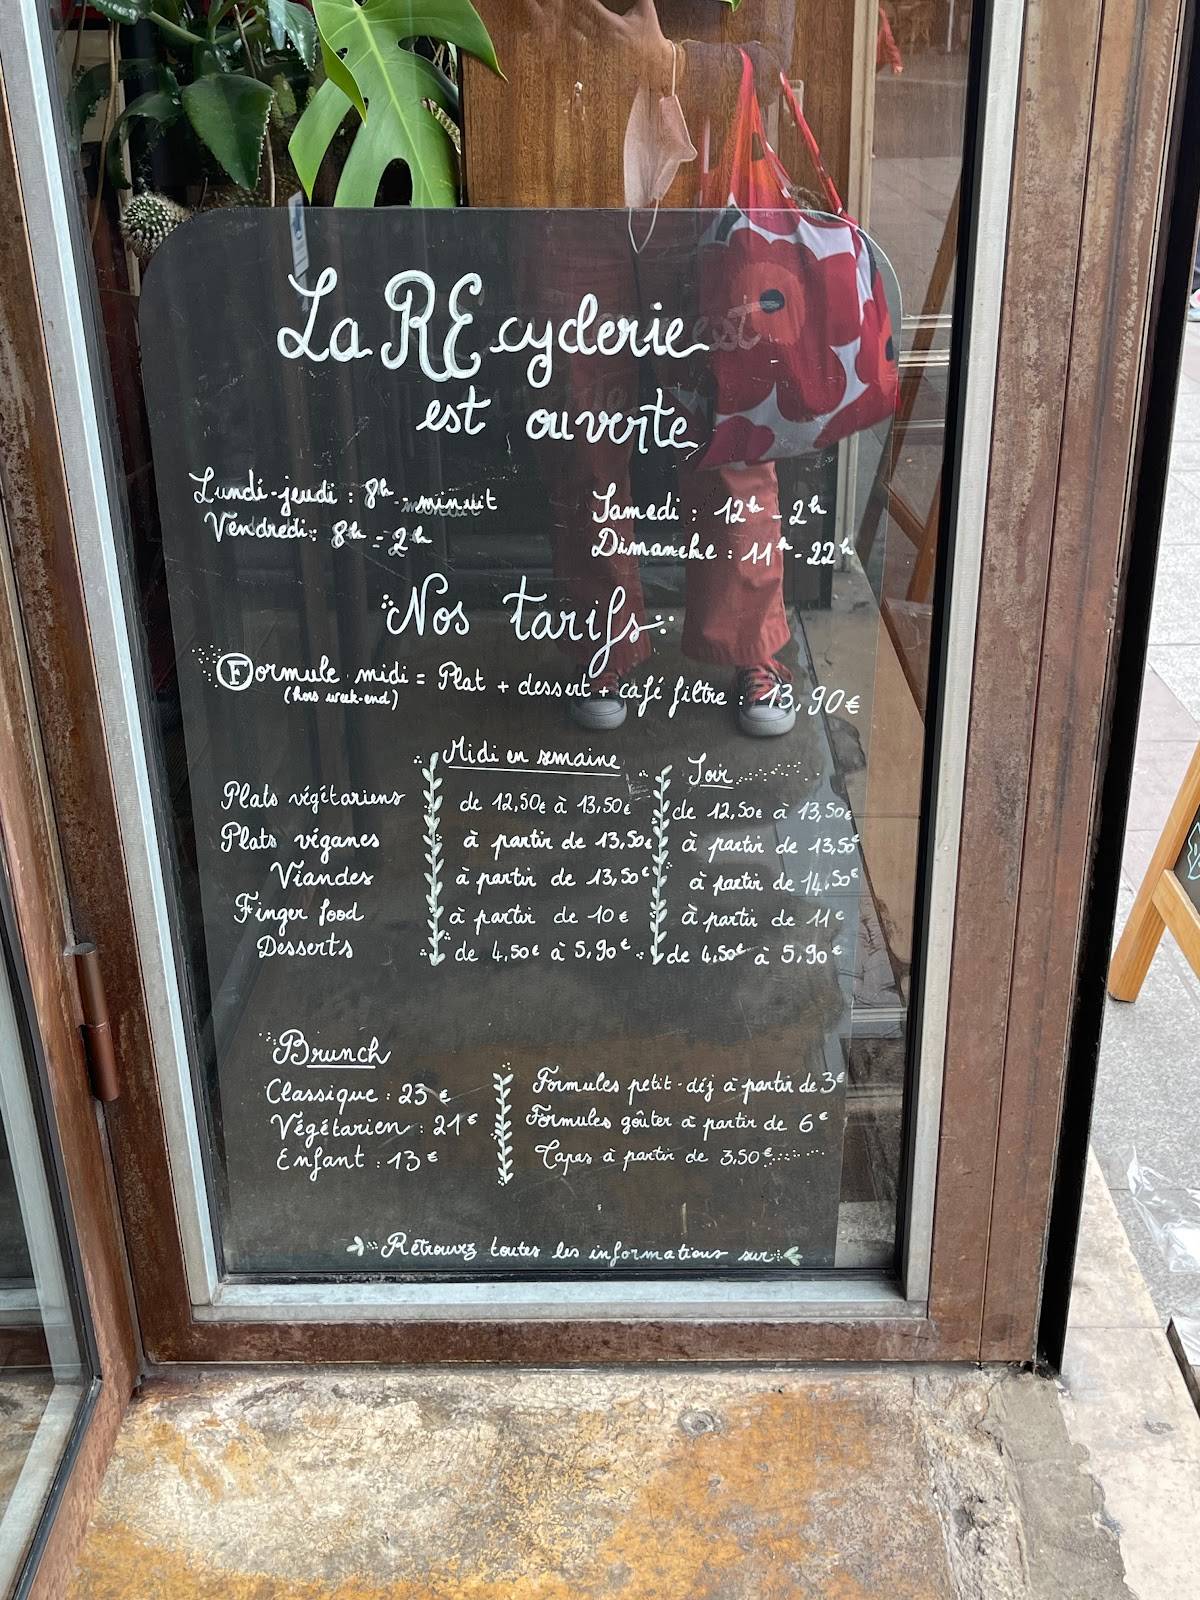 La REcyclerie
est ouverte
Lundi-jeudi : 8h - minuit
Vendredi : 8h - 2h
Samedi : 12h - 2h
Dimanche : 11h - 22h
Nos tarifs
Formule midi = Plat + dessert + café filtre : 13,90€
(hors week-end)
Midi en semaine Soir
Plats végétariens de 12,50€ à 13,50€ de 12,50€ à 13,50€
Plats véganes à partir de 13,50€ à partir de 13,50€
Viandes à partir de 13,50€ à partir de 14,50€
Finger food à partir de 10€ à partir de 11€
Desserts de 4,50€ à 5,90€ de 4,50€ à 5,90€
Brunch
Classique : 23€
Végétarien : 21€
Enfant : 13€
Formules petit-déj à partir de 3€
Formules goûter à partir de 6€
Tapas à partir de 3,50€
Retrouvez toutes les informations sur